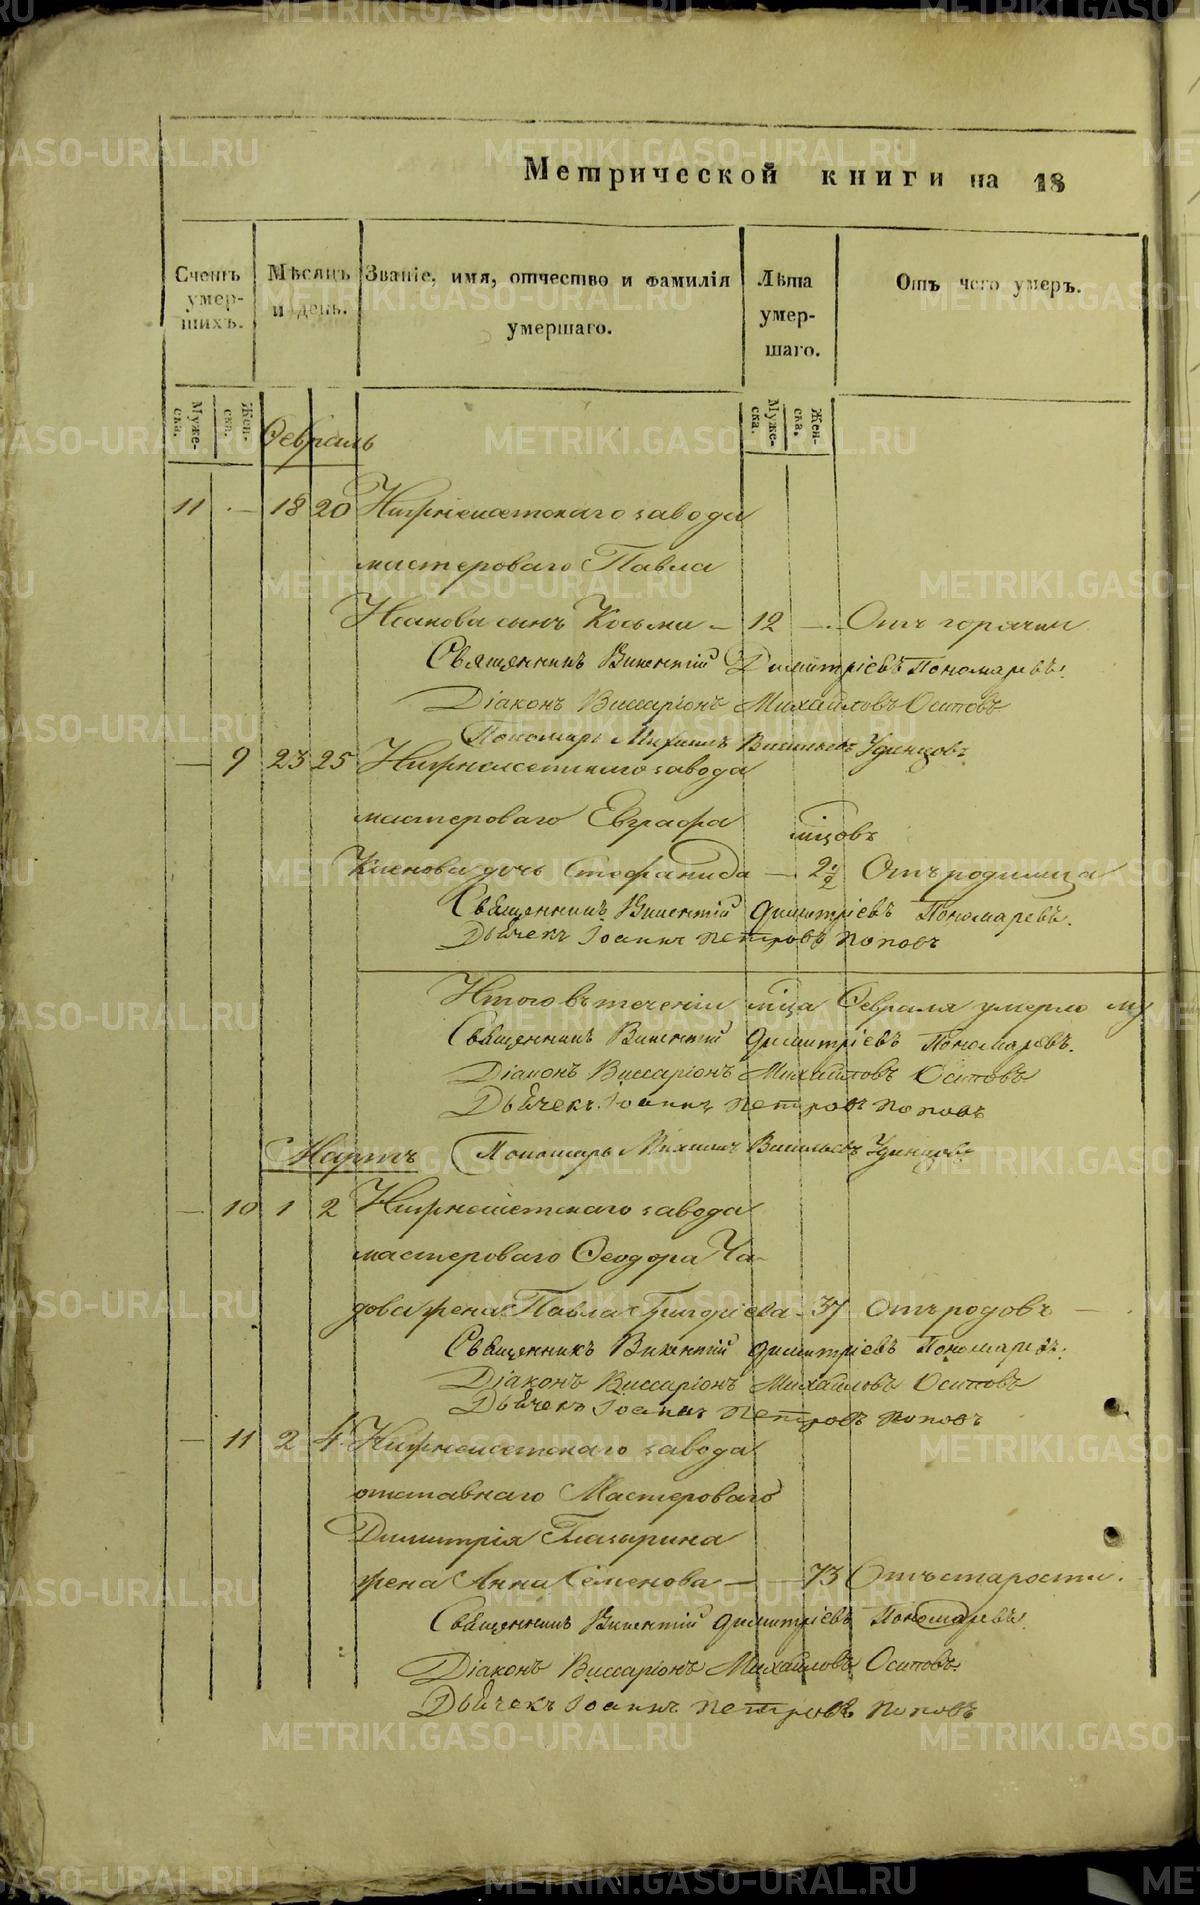 Метрической книги на 18
Счетъ умер-шихъ.
Мѣсяцъ и день.
Званіе, имя, отчество и фамилія умершаго.
Лѣта умер-шаго.
Отъ чего умеръ.
Муже-ска.
Жен-ска.
Муже-ска.
Жен-ска.
Февраль
11 - 18 20 Нижнеисетскаго завода
мастероваго Павла
Исакова сынъ Козьма - 12 - Отъ горячки
Священникъ Викентій Димитріевъ Пономаревъ.
Діаконъ Виссаріонъ Михайловъ Осиповъ
Пономарь Михаилъ Васильевъ Удинцовъ
- 9 23 25 Нижнеисетскаго завода
мастероваго Евграфа
мцовъ
дочь Стефанида - 2 1/2 Отъ родимца
Священникъ Викентій Димитріевъ Пономаревъ.
Дьячекъ Іоаннъ Петровъ Поповъ
Итого въ теченіи мца Февраля умерло му
Священникъ Викентій Димитріевъ Пономаревъ.
Діаконъ Виссаріонъ Михайловъ Осиповъ
Дьячекъ Іоаннъ Петровъ Поповъ
Мартъ Пономарь Михаилъ Васильевъ Удинцовъ
- 10 1 2 Нижнеисетскаго завода
мастероваго Феодора Ча-
дова жена Павла Григоріева - 37 Отъ родовъ -
Священникъ Викентій Димитріевъ Пономаревъ.
Діаконъ Виссаріонъ Михайловъ Осиповъ
Дьячекъ Іоаннъ Петровъ Поповъ
- 11 2 4 Нижнеисетскаго завода
отставнаго Мастероваго
Димитрія Глазырина
жена Анна Семенова - - 73 Отъ старости.
Священникъ Викентій Димитріевъ Пономаревъ.
Діаконъ Виссаріонъ Михайловъ Осиповъ
Дьячекъ Іоаннъ Петровъ Поповъ
METRIKI.GASO-URAL.RU